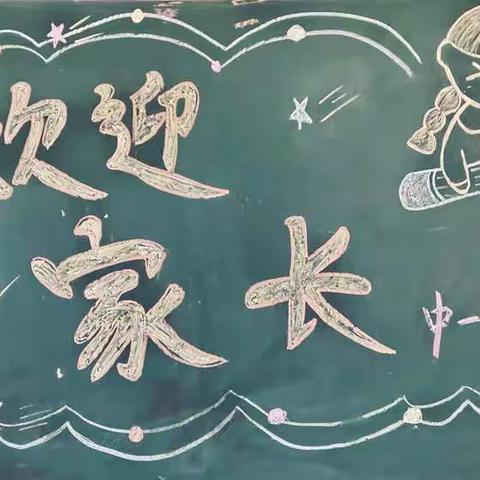 欢迎
家长
中一